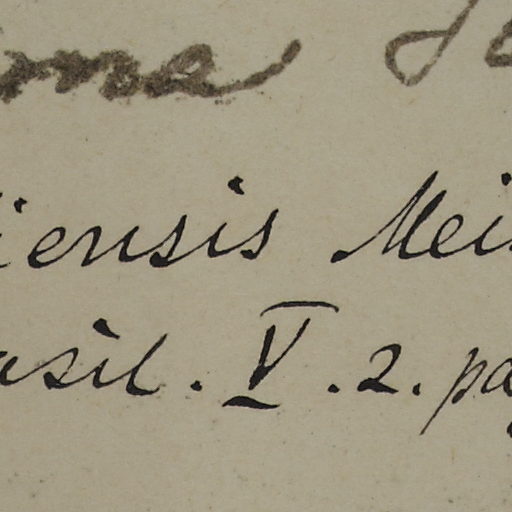 iensis Mei
asil. V. 2. pa